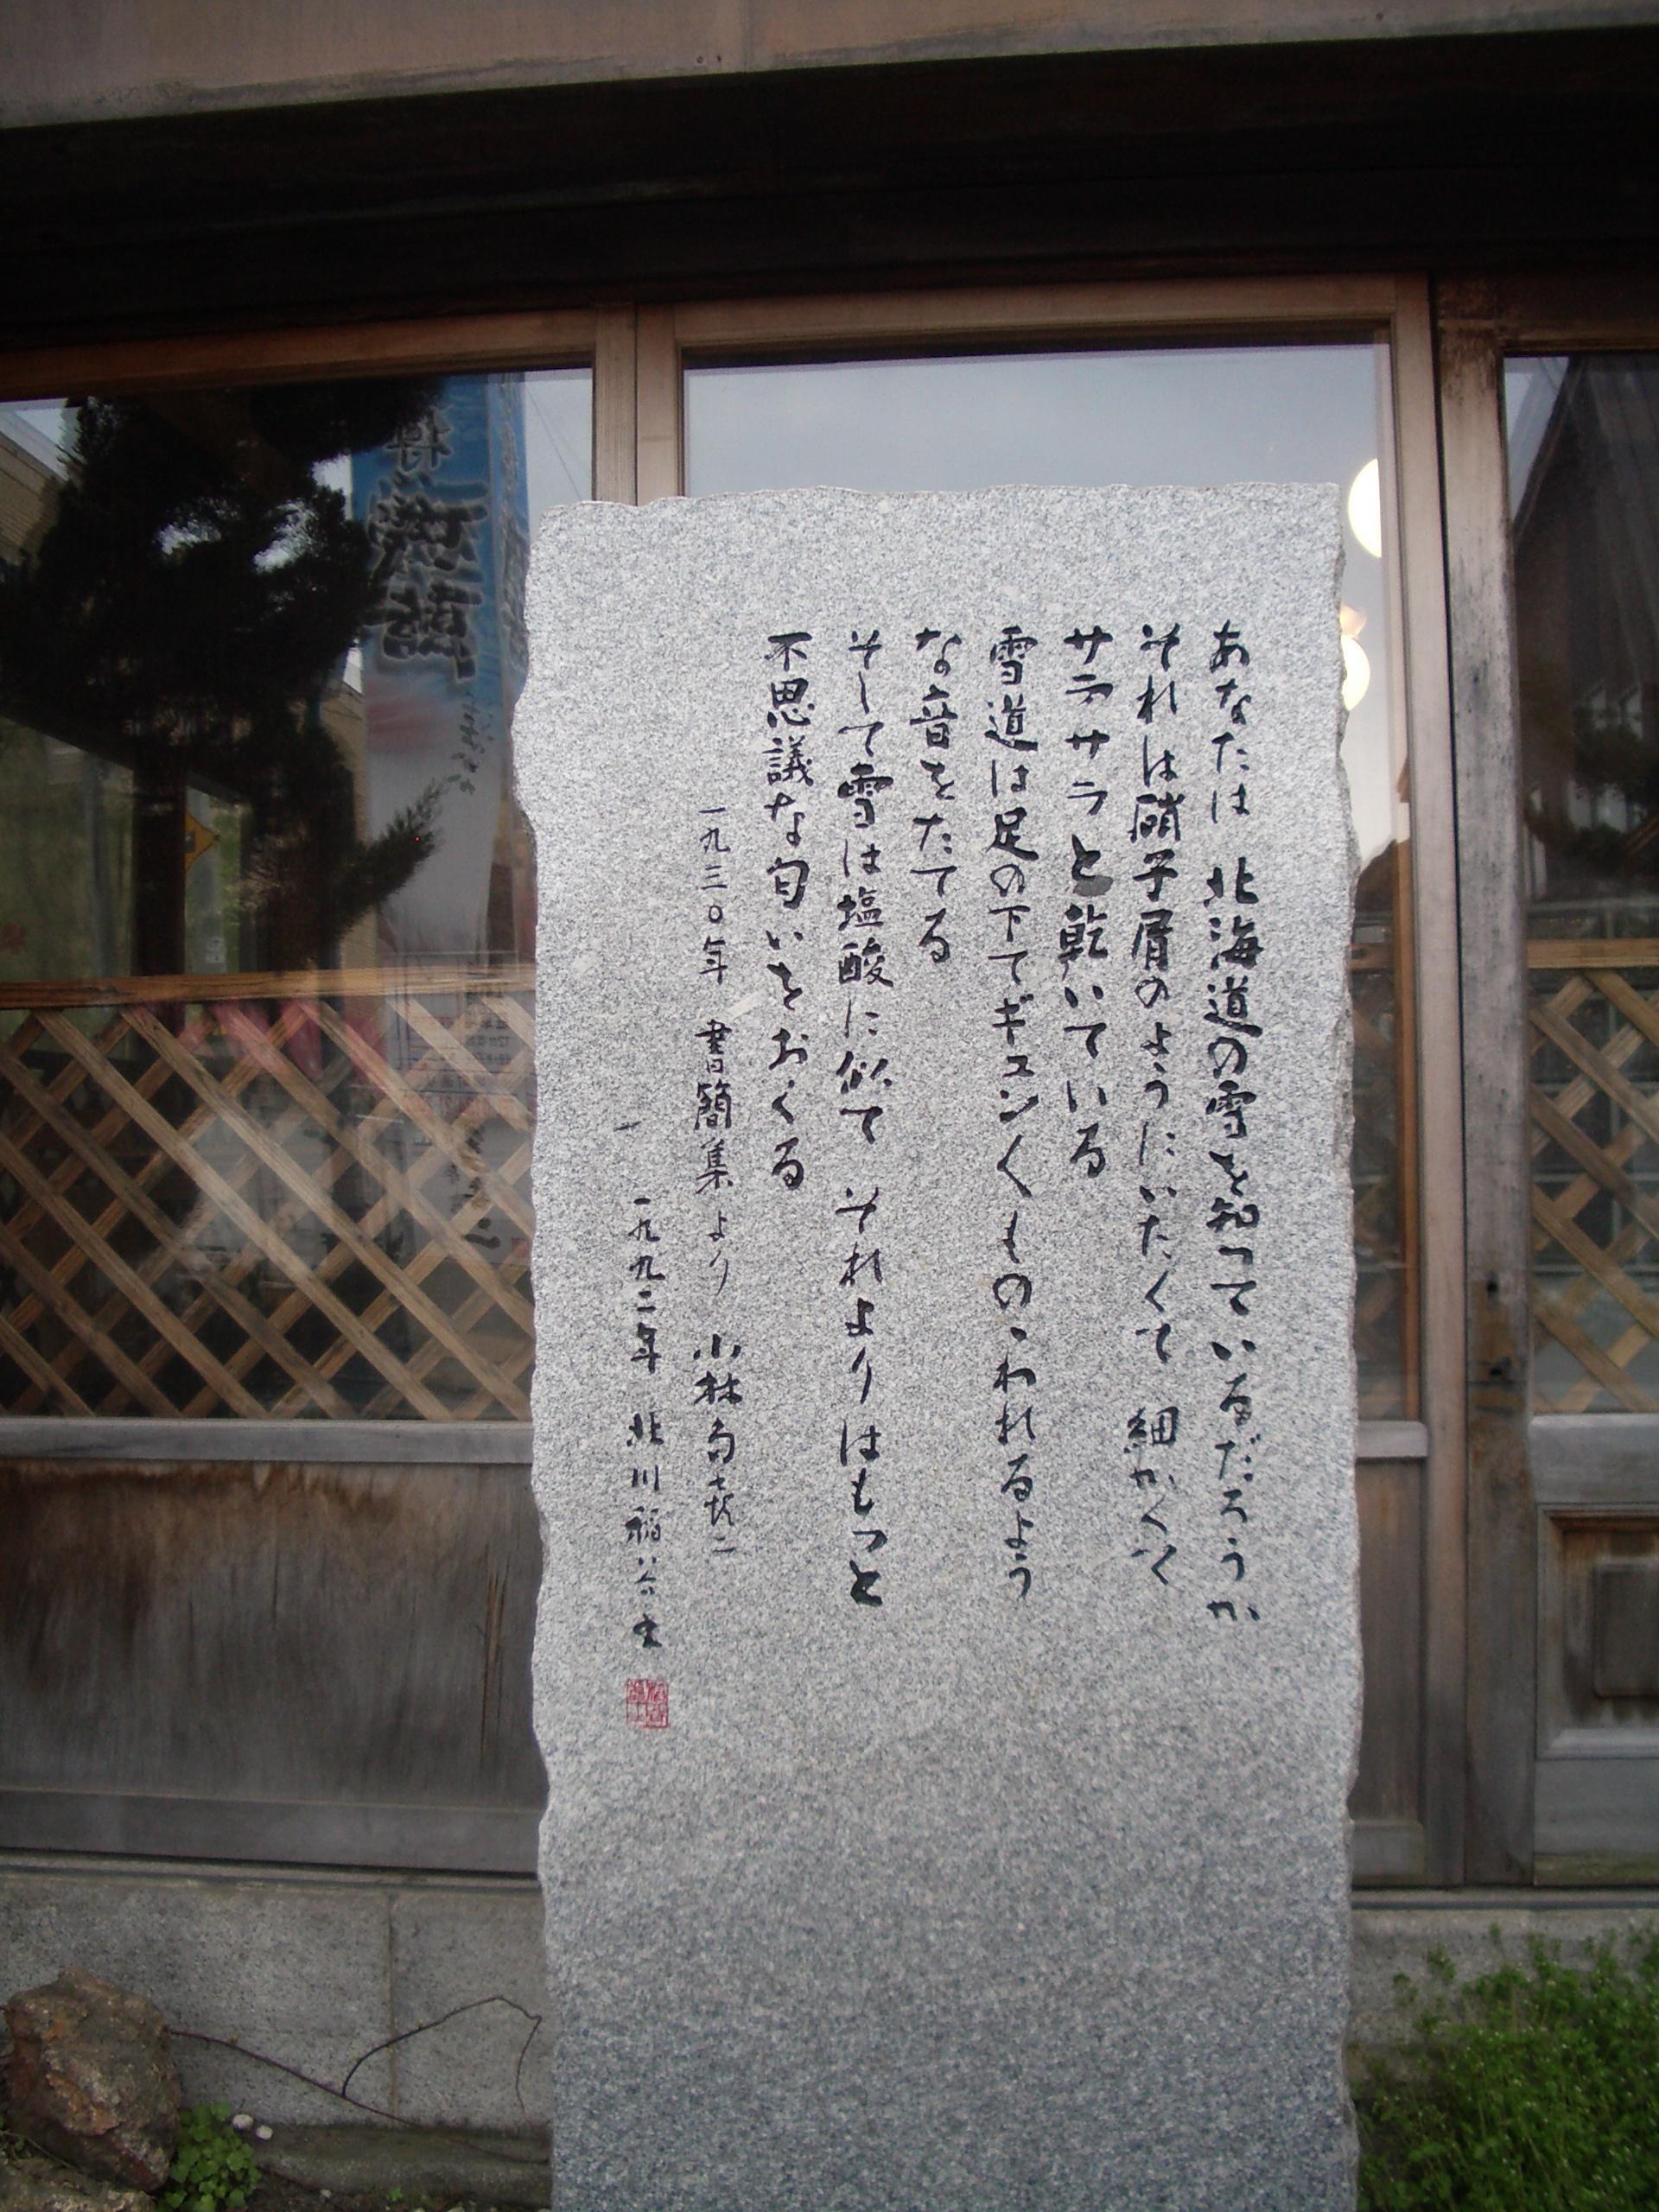 あなたは 北海道の雪を知っているだろうか
それは硝子屑のようにいたくて 細かくて
サラサラと乾いている
雪道は足の下でギュンくものこわれるよう
な音をたてる
そして雪は塩酸に似て それよりはもっと
不思議な匂いをおくる
一九三〇年 書簡集より 小林多喜二
一九九二年 北川稲谷書